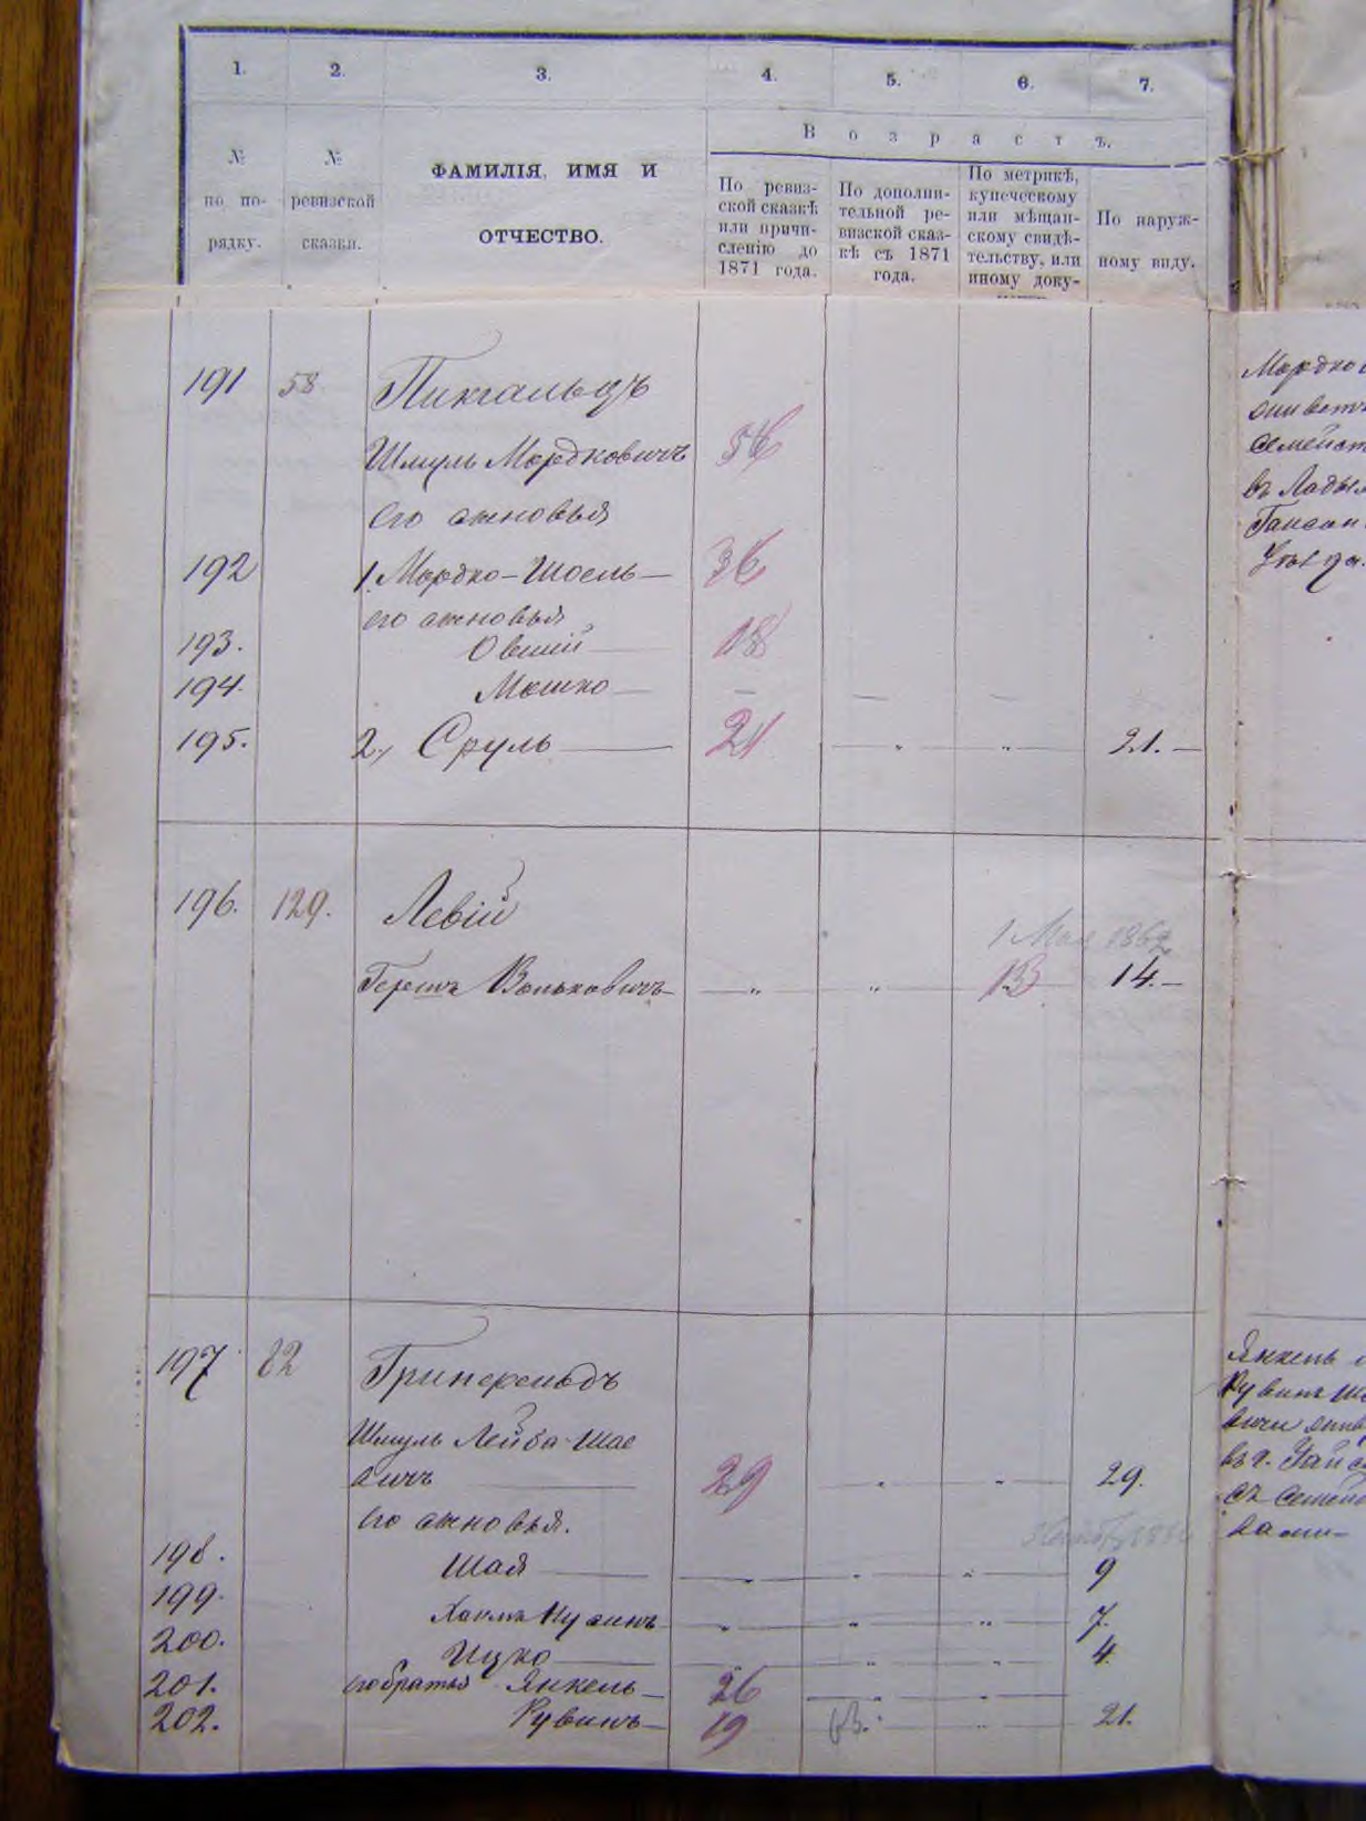 1. 2. 3. 4. 5. 6. 7.
В о з р а с т ъ.
№ по по-рядку.
№ ревизской сказки.
ФАМИЛІЯ, ИМЯ И
ОТЧЕСТВО.
По ревиз-
ской сказкѣ
или причи-
сленію до
1871 года.
По дополни-
тельной ре-
визской сказ-
кѣ съ 1871
года.
По метрикѣ,
купеческому
или мѣщан-
скому свидѣ-
тельству, или
иному доку-
По наруж-
ному виду.
191 58
Шмуль Мордковичъ 56
его сыновья
192 1. Мордко-Шоель 36
его сыновья
193. Овшій 18
194. Мошко —
195. 2, Сруль 21 " " 21.
196. 129. Левій
1 Мая 1862
Гершъ Вольковичъ " " 13 14.
197 82 Гринфельдъ
Шмуль Лейба Шае
вичъ 29 " " 29.
его сыновья.
198. Шая " " " 9
199. Хаимъ Нусинъ " " " 7.
200. Ицко " " " 4.
201. его братья Янкель 26 " "
202. Рувинъ 19 " 21.
семейст
въ
Янкель
Рувинъ
вичи
въ г.
съ семей
вами